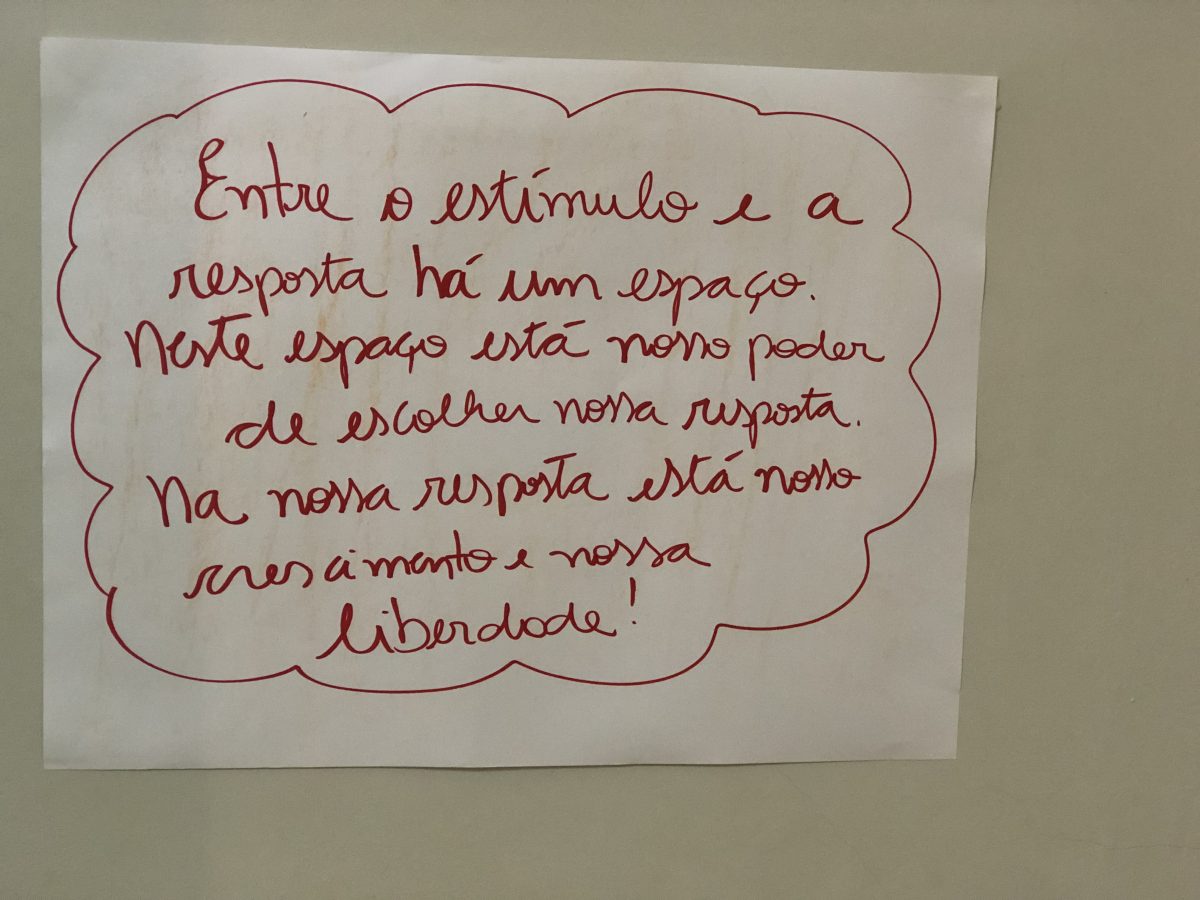 Entre o estímulo e a
resposta há um espaço.
Neste espaço está nosso poder
de escolher nossa resposta.
Na nossa resposta está nosso
crescimento e nossa
liberdade!